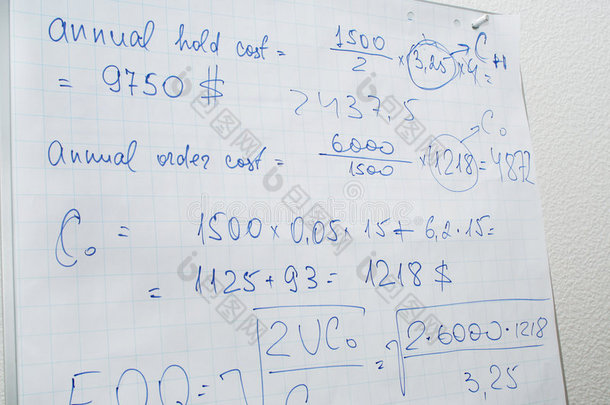 annual hold cost = 1500/2 × 3,25 × 4 =
= 9750 $
2437,5
annual order cost = 6000/1500 × 1218 = 4872
C₀
C₀ = 1500 × 0,05 · 15 + 6,2 · 15 =
= 1125 + 93 = 1218 $
EOQ = √2UC₀ = √2·6000·1218/3,25
包图网
dreamstime